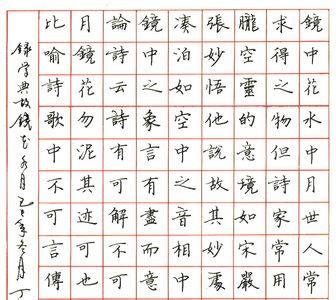 鏡中花水中月世人常
求得之物但詩家常用
朧空靈的意境如宋嚴
張妙悟他說故其妙處
湊泊如空中之音相中
鏡中之象言有盡而意
論詩云詩有可解不可
月鏡花勿泥其迹可也
比喻詩歌中不可言傳
錄字典故鏡花水月 年冬月丁